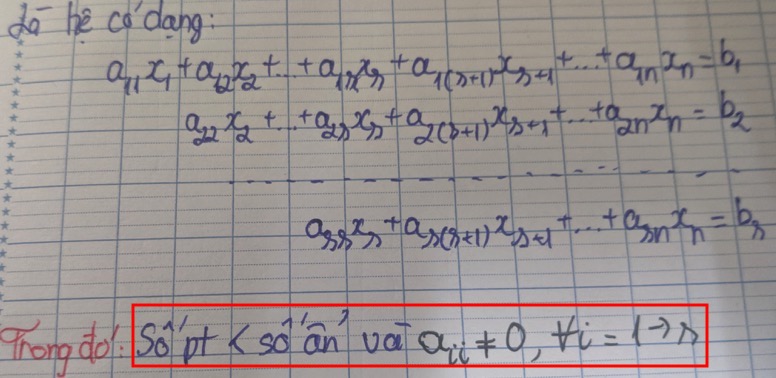 là hệ có dạng:
a₁₁x₁ + a₁₂x₂ + ... + a₁ᵣxᵣ + a₁₍ᵣ₊₁₎xᵣ₊₁ + ... + a₁ₙxₙ = b₁
a₂₂x₂ + ... + a₂ᵣxᵣ + a₂₍ᵣ₊₁₎xᵣ₊₁ + ... + a₂ₙxₙ = b₂
- - - - - - - - - - - - - - - - - -
aᵣᵣxᵣ + aᵣ₍ᵣ₊₁₎xᵣ₊₁ + ... + aᵣₙxₙ = bᵣ
Trong đó: Số pt < số ẩn và aᵢᵢ ≠ 0, ∀i = 1→r